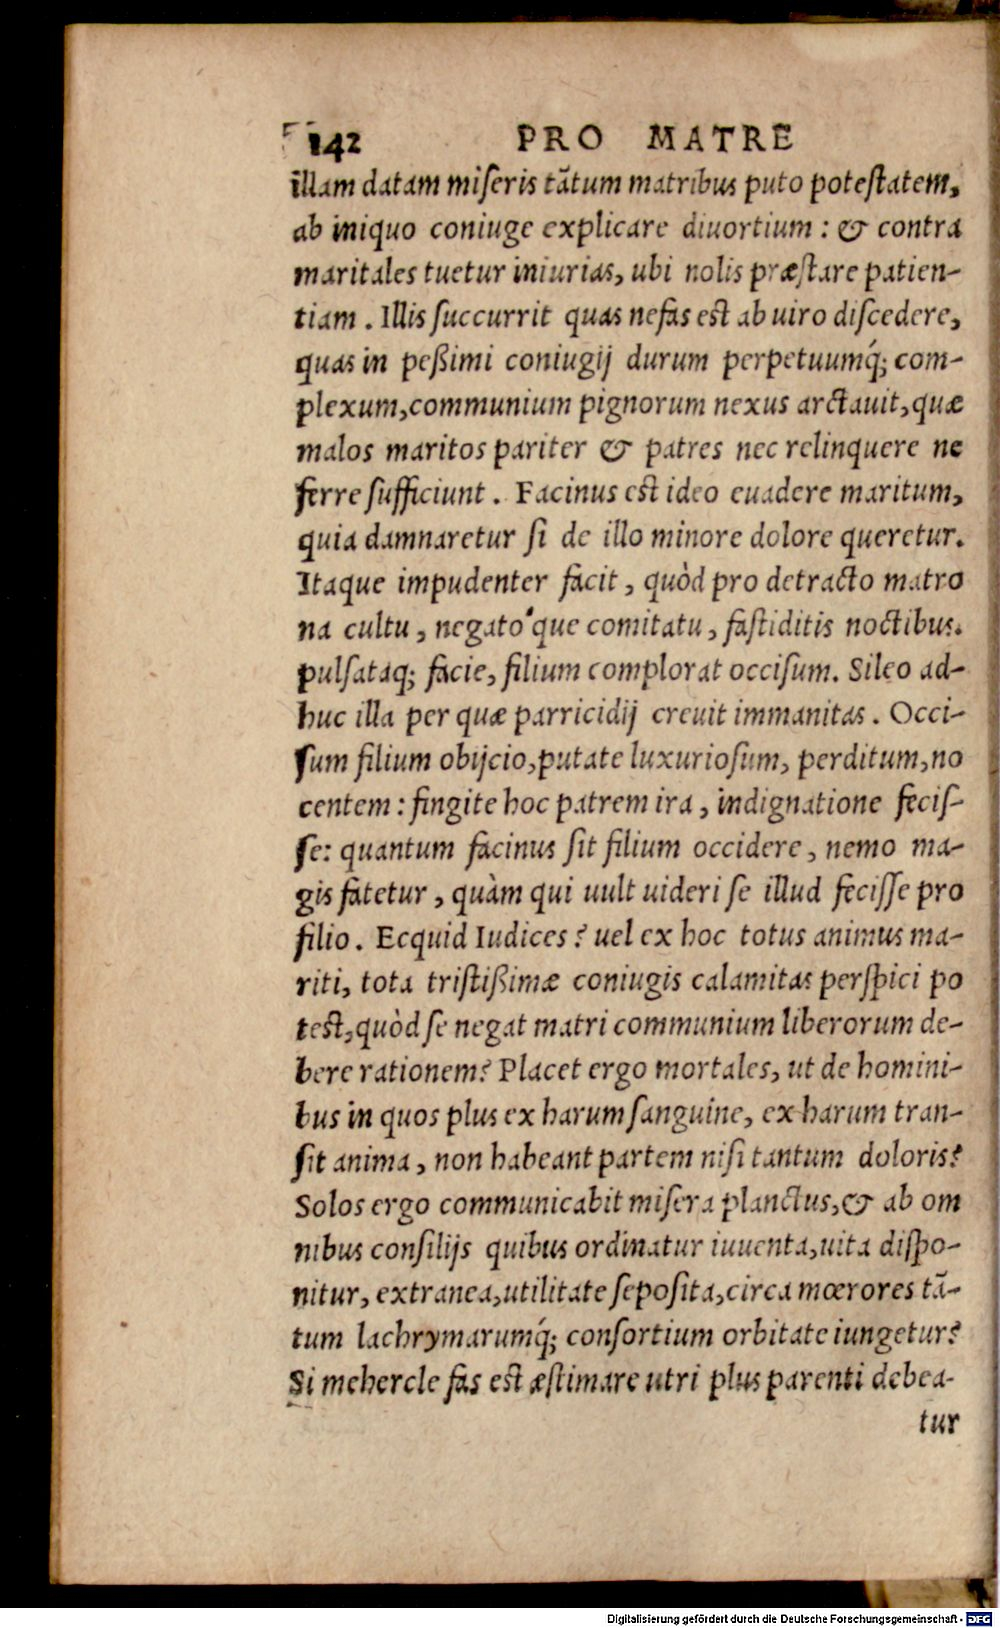 142 PRO MATRE
illam datam miſeris tãtum matribus puto poteſtatem,
ab iniquo coniuge explicare diuortium : & contra
maritales tuetur iniurias, ubi nolis præſtare patien-
tiam . Illis ſuccurrit quas nefas eſt ab uiro diſcedere,
quas in peßimi coniugij durum perpetuumq́; com-
plexum, communium pignorum nexus arctauit, quæ
malos maritos pariter & patres nec relinquere ne
ferre ſufficiunt . Facinus eſt ideo euadere maritum,
quia damnaretur ſi de illo minore dolore queretur.
Itaque impudenter facit , quòd pro detracto matro
na cultu , negato que comitatu , faſtiditis noctibus.
pulſataq; facie, filium complorat occiſum. Sileo ad-
huc illa per quæ parricidij creuit immanitas . Occi-
ſum filium obijcio, putate luxurioſum, perditum, no
centem : fingite hoc patrem ira , indignatione feciſ-
ſe: quantum facinus ſit filium occidere , nemo ma-
gis fatetur , quàm qui uult uideri ſe illud feciſſe pro
filio . Ecquid Iudices ? uel ex hoc totus animus ma-
riti, tota triſtißimæ coniugis calamitas perſpici po
teſt, quòd ſe negat matri communium liberorum de-
bere rationem? Placet ergo mortales, ut de homini-
bus in quos plus ex harum ſanguine, ex harum tran-
ſit anima , non habeant partem niſi tantum doloris?
Solos ergo communicabit miſera planctus, & ab om
nibus conſilijs quibus ordinatur iuuenta, uita diſpo-
nitur, extranea, utilitate ſepoſita, circa mœrores tã-
tum lachrymarumq́; conſortium orbitate iungetur?
Si mehercle fas eſt æſtimare utri plus parenti debea-
tur
Digitalisierung gefördert durch die Deutsche Forschungsgemeinschaft - DFG